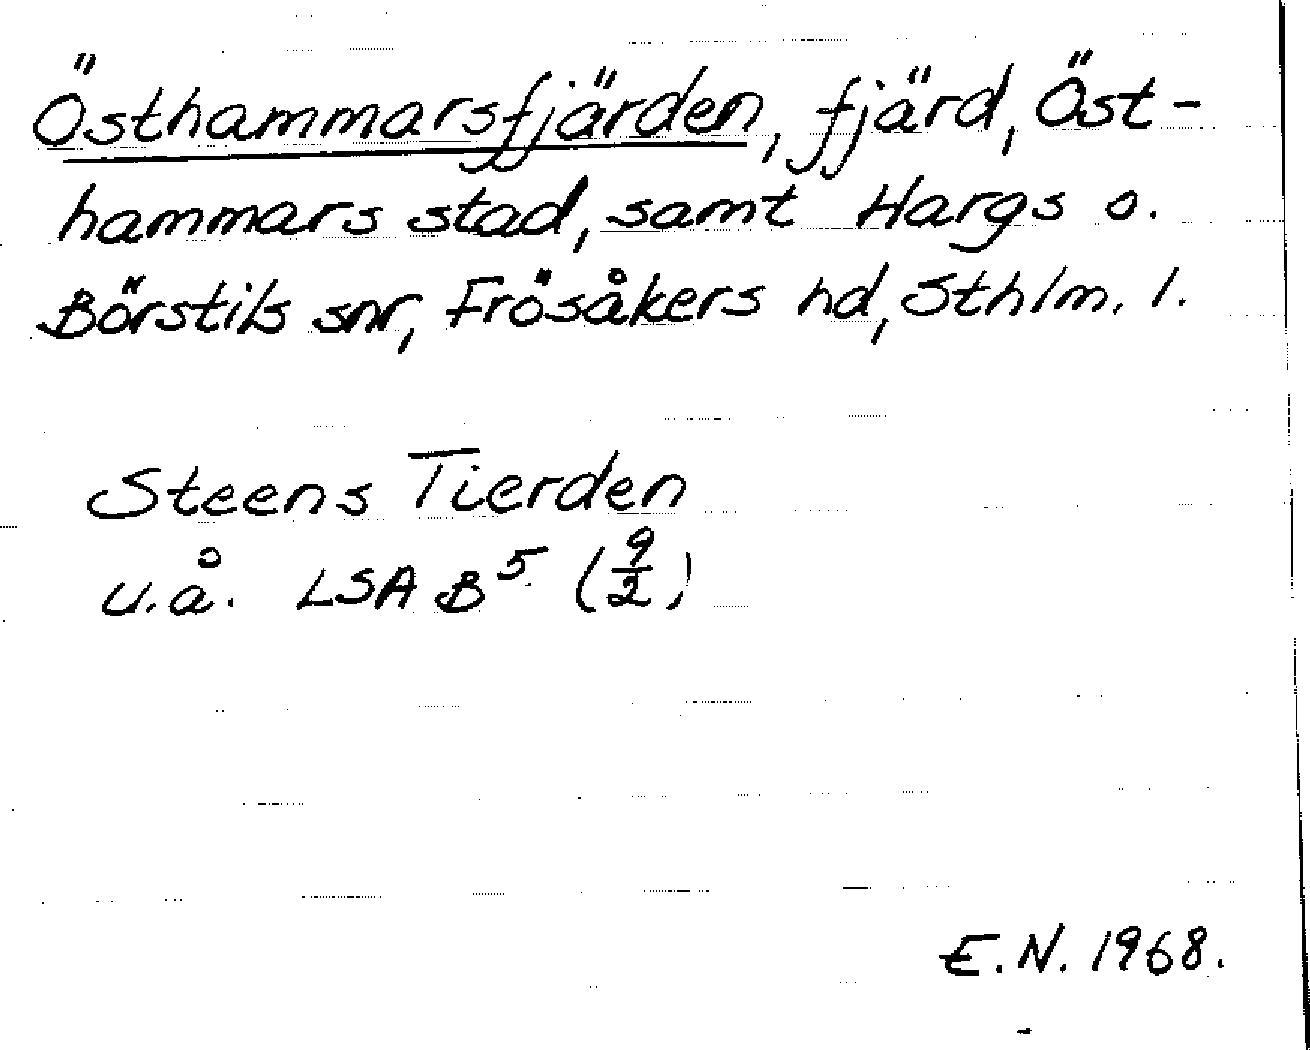 Östhammarsfjärden, fjärd, Öst-
hammars stad, samt Hargs o.
Börstils snr, Frösåkers hd, Sthlm. l.
Steens Tierden
u.å. LSA B⁵ (9/2)
E.N. 1968.